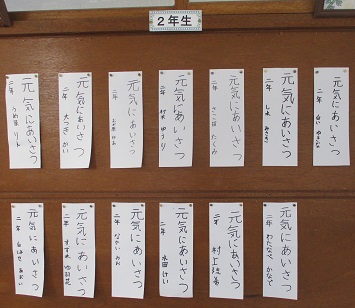 2年生
元気にあいさつ
二年 白い
元気にあいさつ
二年 しみ
元気にあいさつ
二年 さこほ たくみ
元気にあいさつ
二年
元気にあいさつ
二年
元気にあいさつ
二年 大つき かい
元気にあいさつ
二年 りん
元気にあいさつ
二年 わたなべ かなで
元気にあいさつ
二年 村上
元気にあいさつ
二年 水田 けい
元気にあいさつ
二年 なかい みお
元気にあいさつ
二年 すず木
元気にあいさつ
二年 あおい